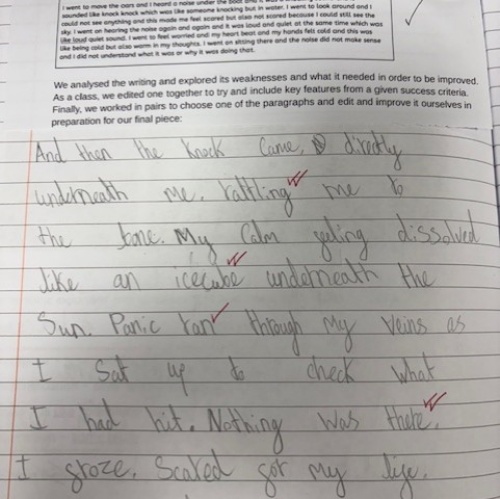 I went to move the oars and I heard a noise under the boat and it was a
sounded like knock knock which was like someone knocking but in water. I went to look around and I
could not see anything and this made me feel scared but also not scared because I could still see the
sky. I went on hearing the noise again and again and it was loud and quiet at the same time which was
like loud quiet sound. I went to feel worried and my heart beat and my hands felt cold and this was
like being cold but also warm in my thoughts. I went on sitting there and the noise did not make sense
and I did not understand what it was or why it was doing that.
We analysed the writing and explored its weaknesses and what it needed in order to be improved.
As a class, we edited one together to try and include key features from a given success criteria.
Finally, we worked in pairs to choose one of the paragraphs and edit and improve it ourselves in
preparation for our final piece:
And then the knock came, directly
underneath me, rattling me to
the bone. My calm feeling dissolved
like an icecube underneath the
Sun. Panic ran through my veins as
I sat up to check what
I had hit. Nothing was there.
I froze. Scared for my life.